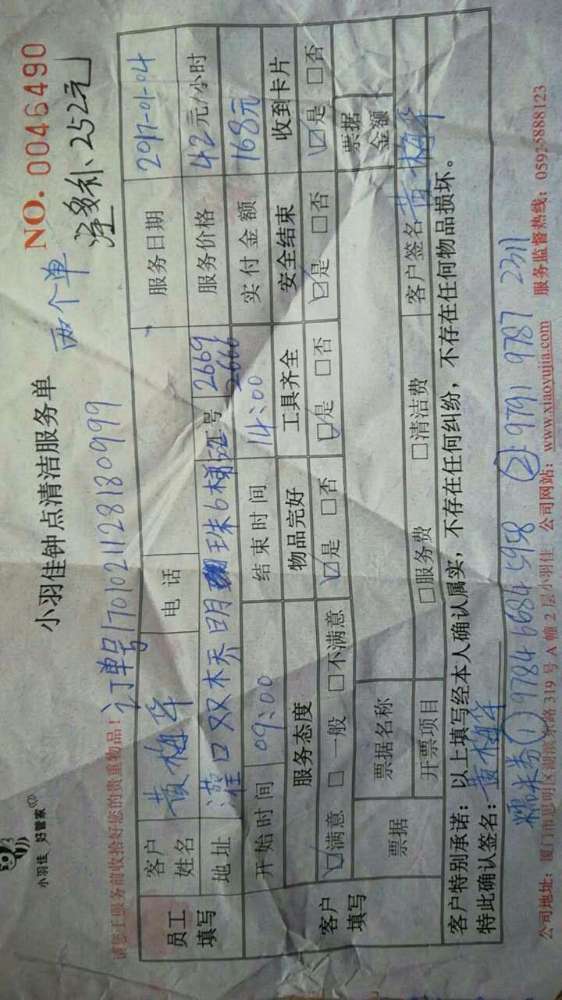 小羽佳 好管家
小羽佳钟点清洁服务单
NO. 0046490
两个单
净多补252元
请您于服务前收拾好您的贵重物品!
订单号1701021128180999
员工填写
客户姓名 黄梅华 电话 服务日期 2017-01-04
地址 灌口双 明珠6梯 号 2669 服务价格 42元/小时
开始时间 09:00 结束时间 14:00 实付金额 168元
客户填写
服务态度 物品完好 工具齐全 安全结束 收到卡片
☑满意 □一般 □不满意 ☑是 □否 ☑是 □否 ☑是 □否 ☑是 □否
票据 票据名称 票据金额
开票项目 □服务费 □清洁费 客户签名 黄梅华
客户特别承诺:以上填写经本人确认属实,不存在任何纠纷,不存在任何物品损坏。
特此确认签名:黄梅华
糯米券① 9784 6684 5958 ② 9791 9787 2311
公司地址:厦门市思明区湖滨东路319号A幢2层小羽佳 公司网站:www.xiaoyujia.com 服务监督热线:0592-5888123